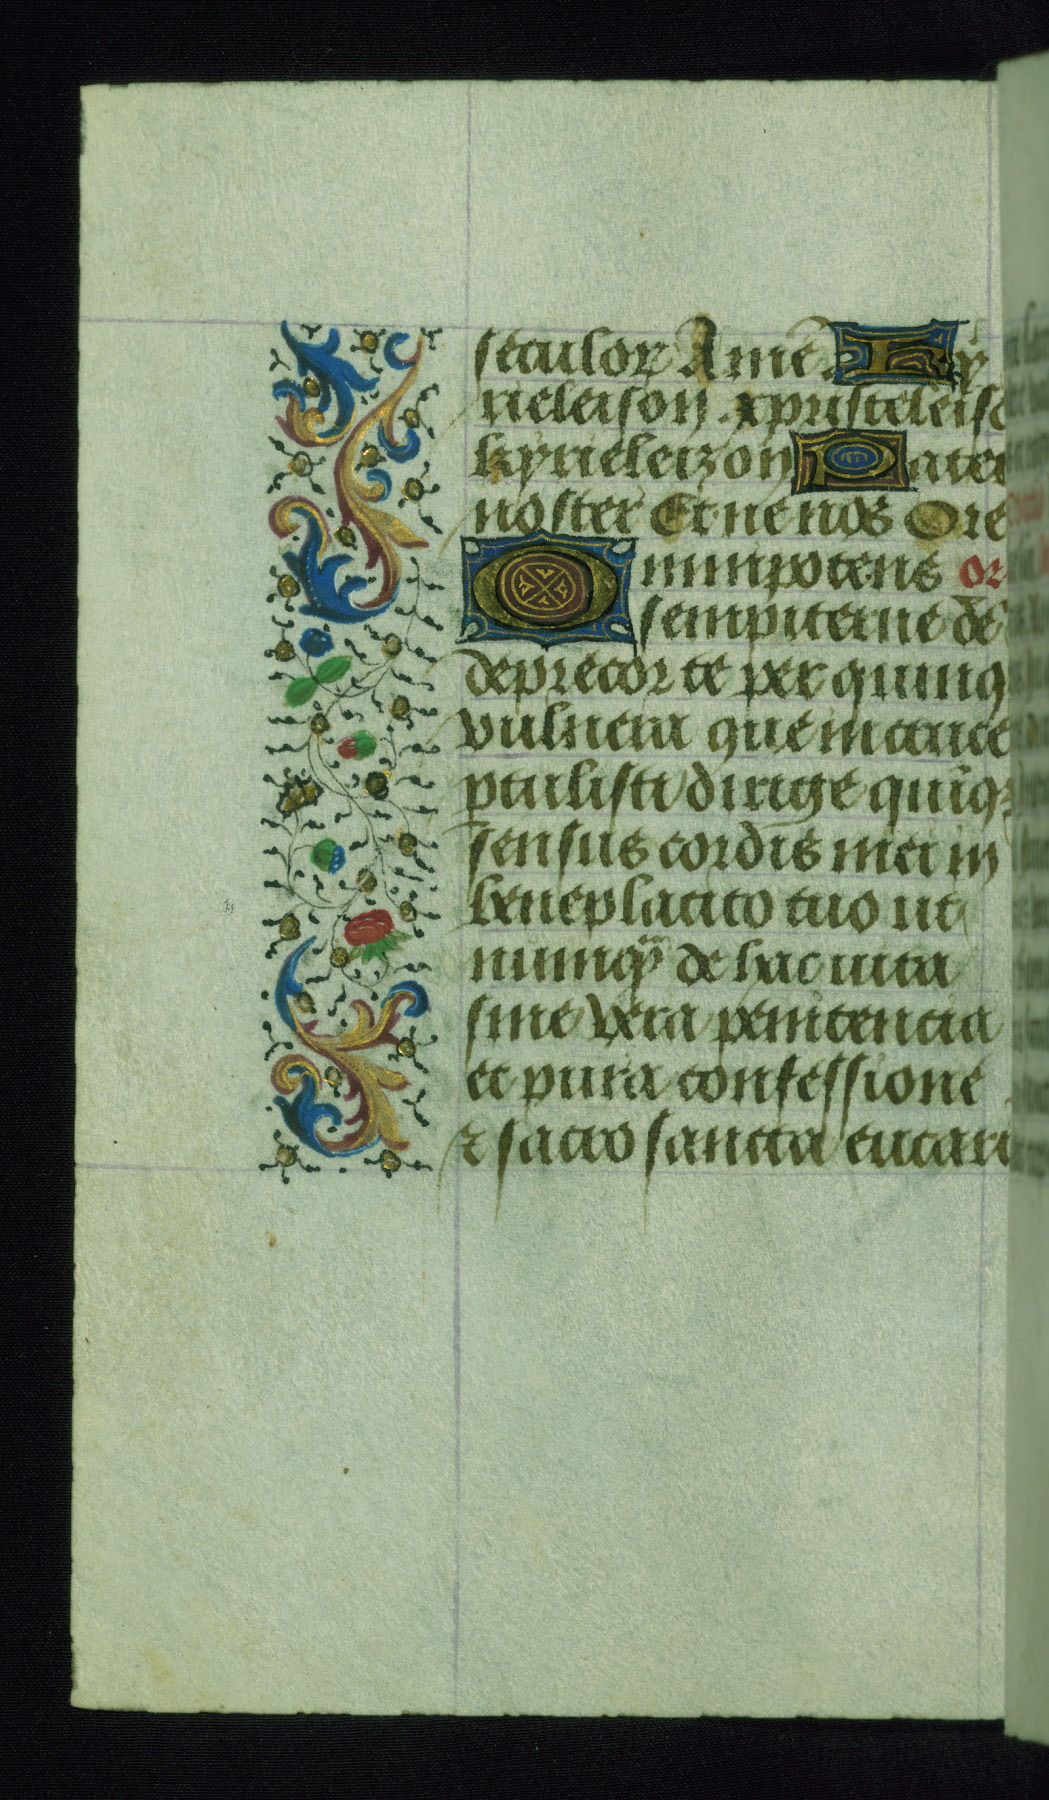 seculor Ame Ky
rieleison . xpristeleiso
kyrieleizon Pater
noster Et ne nos Ore
Omnipotens or
sempiterne de
deprecor te per quinq
vulnera que in cruce
ptulisti dirige quiq
sensus cordis mei in
beneplacito tuo ut
numq̃ de hac uita
sine vera penitencia
et pura confessione
⁊ sacro sancta eucari